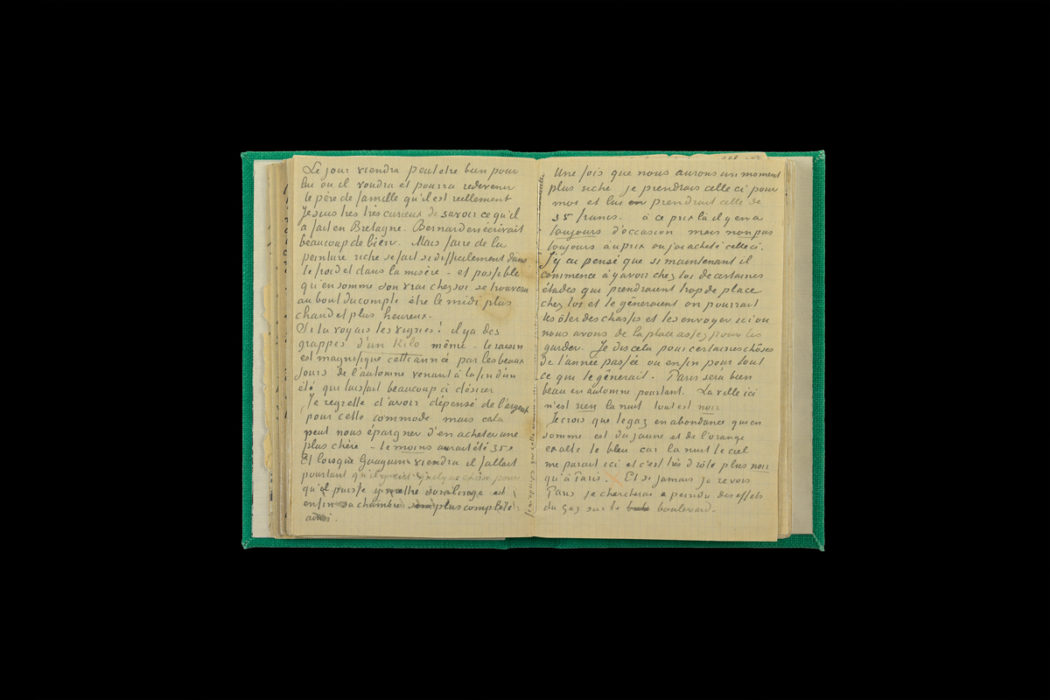 Le jour viendra peut etre bien pour
lui où il voudra et pourra redevenir
le père de famille qu'il est reellement
Je suis très très curieux de savoir ce qu'il
a fait en Bretagne. Bernard en ecrivait
beaucoup de bien. Mais faire de la
peinture riche se fait si difficilement dans
le froid et dans la misère - et possible
qu'en somme son vrai chez soi se trouvera
au bout du compte être le midi plus
chaud et plus heureux.
Si tu voyais les vignes! il y a des
grappes d'un Kilo même - le raisin
est magnifique cette année par les beaux
jours de l'automne venant à la fin d'un
été qui laissait beaucoup à désirer
Je regrette d'avoir dépensé de l'argent
pour cette commode mais cela
peut nous épargner d'en acheter une
plus chère - le moins aurait été 35
Et lorsque Gauguin viendra il fallait
pourtant qu'il
qu'il puisse mettre son linge et
enfin sa chambre plus complète
ainsi.
Une fois que nous aurons un moment
plus riche je prendrais celle ci pour
moi et lui en prendrait celle de
35 francs. à ce prix là il y en a
toujours d'occasion mais non pas
toujours au prix ou j'ai acheté celle ci.
J'y ai pensé que si maintenant il
commence à y avoir chez toi de certaines
études que prendraient trop de place
chez toi et te gêneraient on pourrait
les ôter des chassis et les envoyer ici ou
nous avons de la place assez pour les
garder. Je dis cela pour certaines chôses
de l'année passée ou enfin pour tout
ce que te gênerait. Paris sera bien
beau en automne pourtant. La ville ici
n'est rien la nuit tout est noir
Je crois que le gaz en abondance qui en
somme est du jaune et de l'orange
exalte le bleu car la nuit le ciel
me parait ici et c'est très drôle plus noir
qu'à Paris. Et si jamais je revois
Paris je chercherai a peindre des effets
du gaz sur le boulevard.